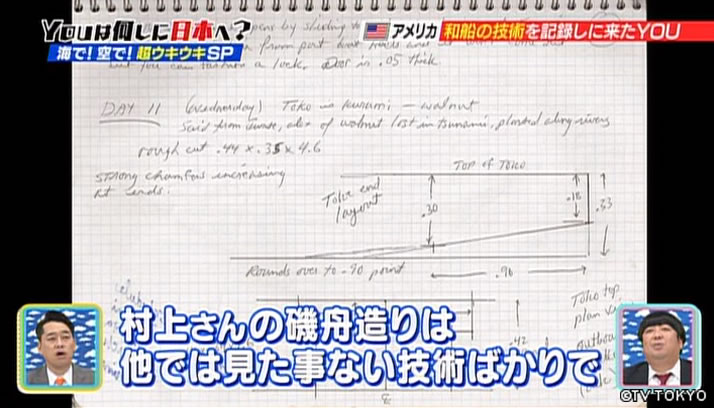 YOUは何しに日本へ?
海で!空で!超ウキウキSP
アメリカ 和船の技術を記録しに来たYOU
pens by sliding
from port
but you can fashion a lock. in .05 thick
DAY 11 (Wednesday) Toko is kurumi – walnut
Said from Sunse, alot of walnut lost in tsunami, planted along rivers
rough cut .44 x .35 x 4.6
strong chamfers increasing
at ends.
Top of Toko
Toko end
layout
.30
.18
.33
Rounds over to .90 point
.96
Toko top
plan
.42
村上さんの磯舟造りは
他では見た事ない技術ばかりで
©TV TOKYO